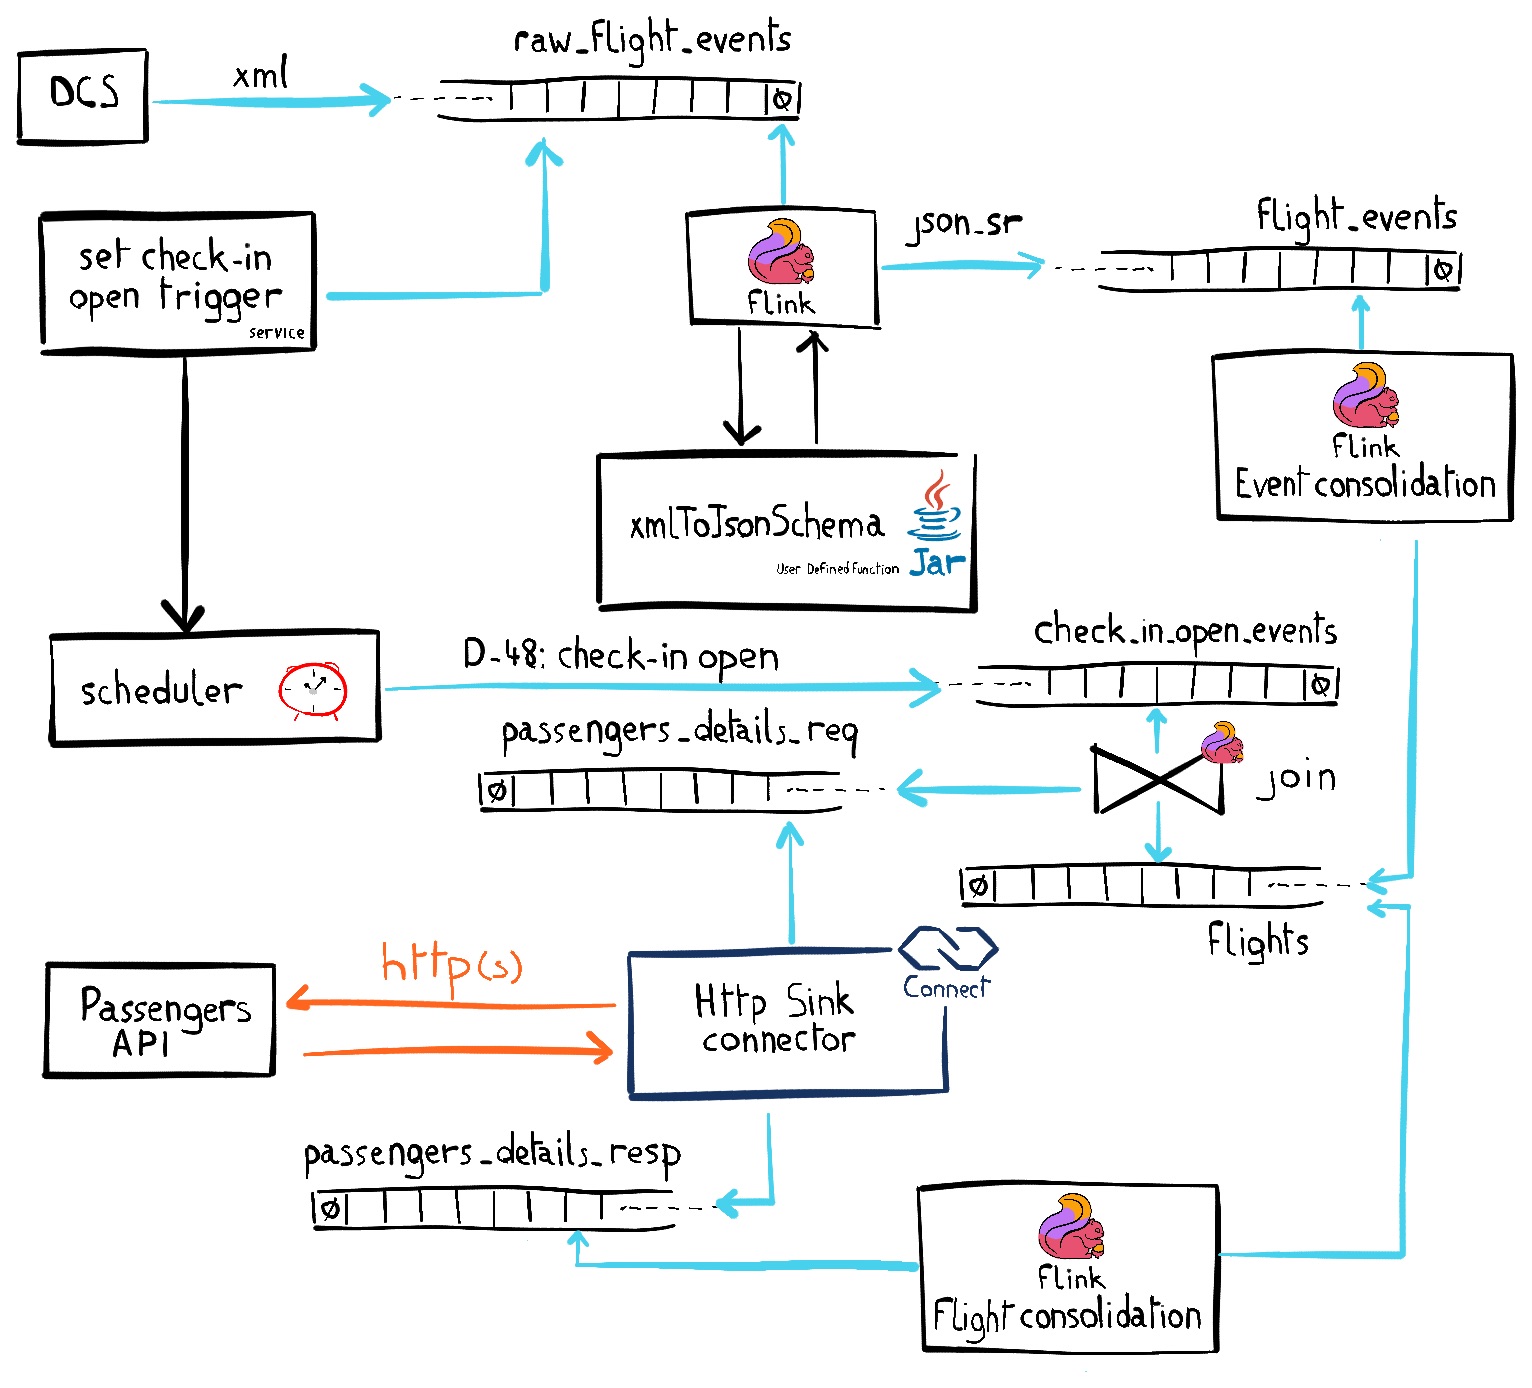 raw_flight_events
DCS
xml
Ø
set check-in
open trigger
service
Flink
json_sr
flight_events
Ø
Flink
Event consolidation
xmlToJsonSchema
User Defined Function
Jar
scheduler
D-48: check-in open
check_in_open_events
Ø
passengers_details_req
Ø
join
Ø
flights
http(s)
Passengers
API
Http Sink
connector
Connect
passengers_details_resp
Ø
Flink
Flight consolidation